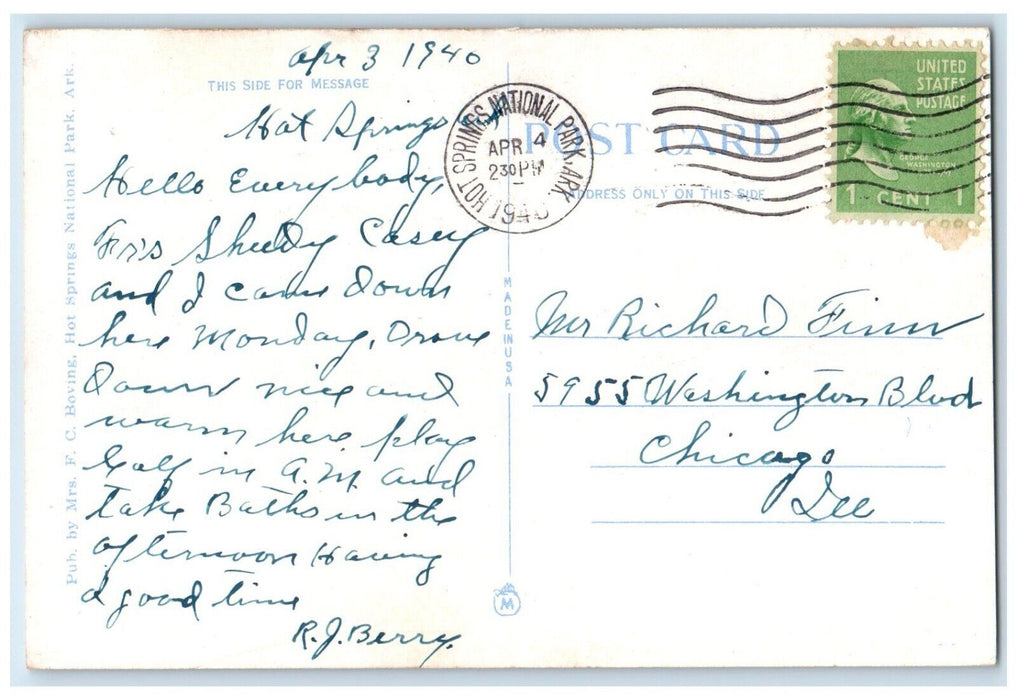 Apr 3 1940
THIS SIDE FOR MESSAGE
Hot Springs
Hello Everybody,
Sheedy Casey
and I came down
here Monday, Drove
down nice and
warm here play
Golf in A.M. and
take Baths in the
afternoon Having
a good time
R.J. Berry.
Pub. by Mrs. F. C. Boving, Hot Springs National Park, Ark.
MADE IN USA
M
HOT SPRINGS NATIONAL PARK, ARK.
APR 4
230 PM
1940
POST CARD
ADDRESS ONLY ON THIS SIDE
UNITED
STATES
POSTAGE
GEORGE
WASHINGTON
1 CENT 1
Mr Richard Finn
5955 Washington Blvd
Chicago
Ill